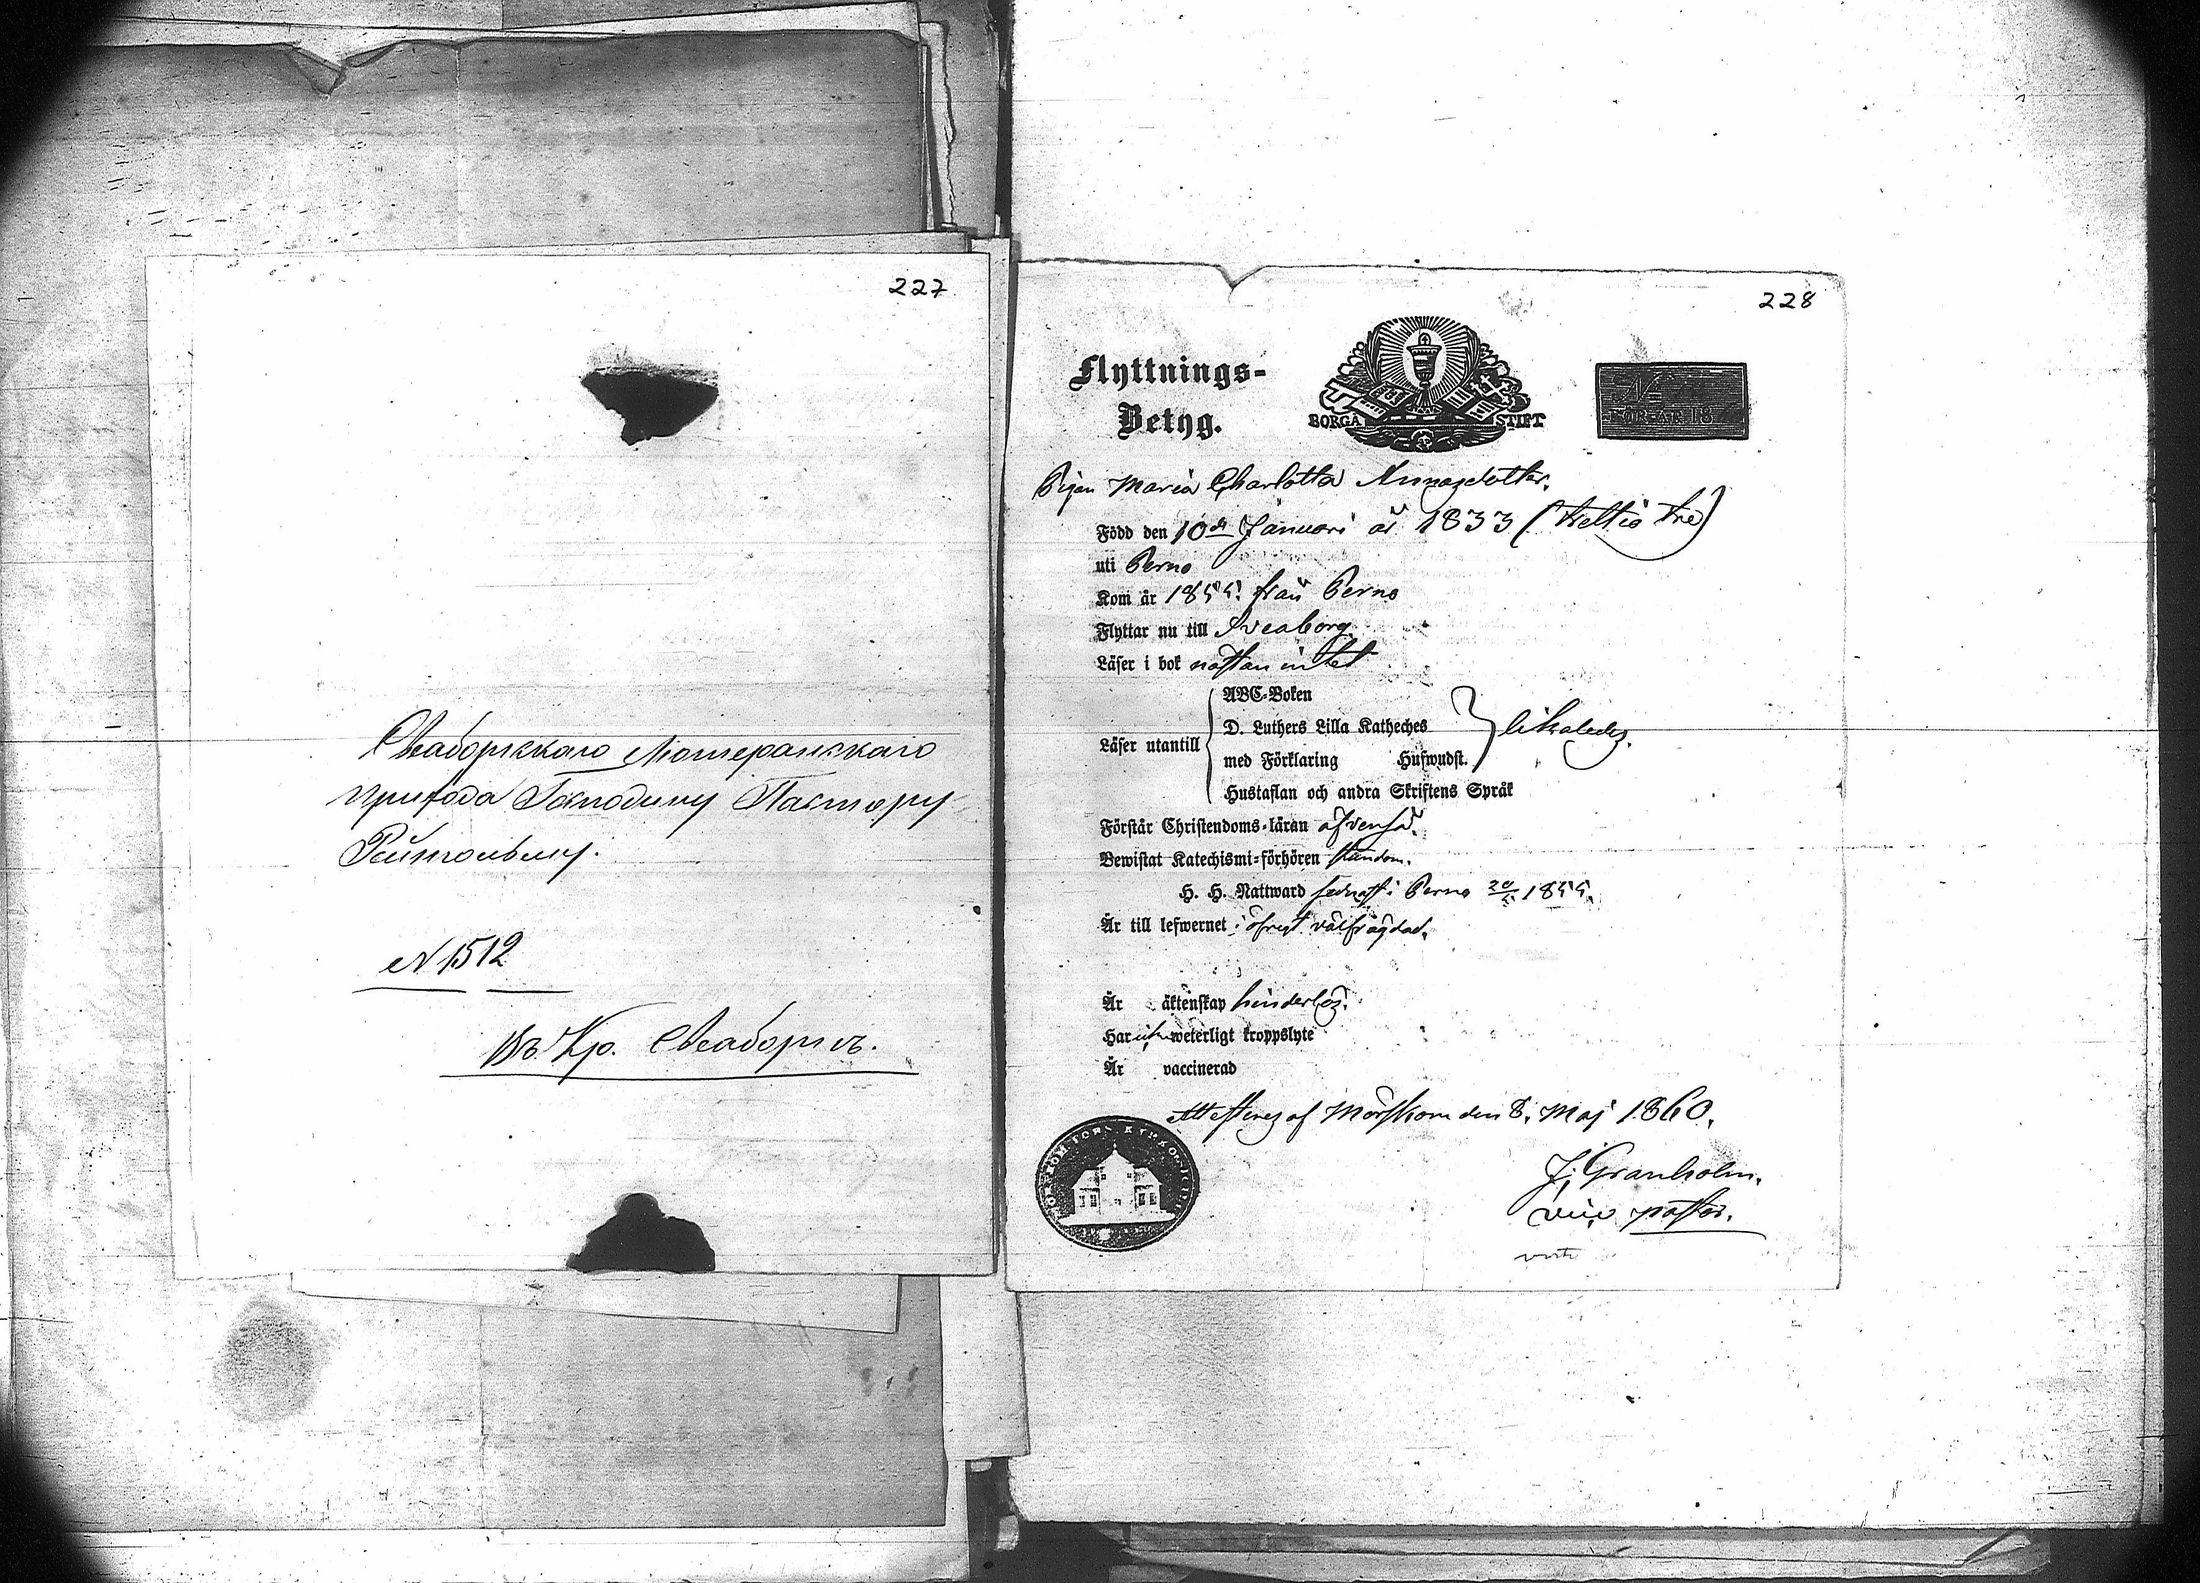 227
Свеаборгскаго Лютеранскаго
прихода Господину Пастору
N 1512
Въ Кр. Свеаборгъ.
228
Flyttnings-
Betyg.
BORGÅ STIFT
N
FÖR ÅR 18
Pigan Maria Charlotta Annasdotter.
Född den 10de Januari år 1833 (trettio tre)
uti Perno
Kom år 1855. från Perno
Flyttar nu till Sveaborg.
Läser i bok nästan intet
ABC-Boken
D. Luthers Lilla Katheches
Läser utantill likaledes.
med Förklaring Hufwudst.
Hustaflan och andra Skriftens Språk
Förstår Christendoms-läran äfvenså.
Bewistat Katechismi-förhören stundom.
H. H. Nattward sednast i Perno 20/5 1855.
Är till lefwernet i öfrigt välfrägdad.
Är äktenskap hinderlös.
Har icke weterligt kroppslyte
Är vaccinerad
Attesteras af Mörskom den 8. Maj 1860.
J. Granholm.
vice pastor.